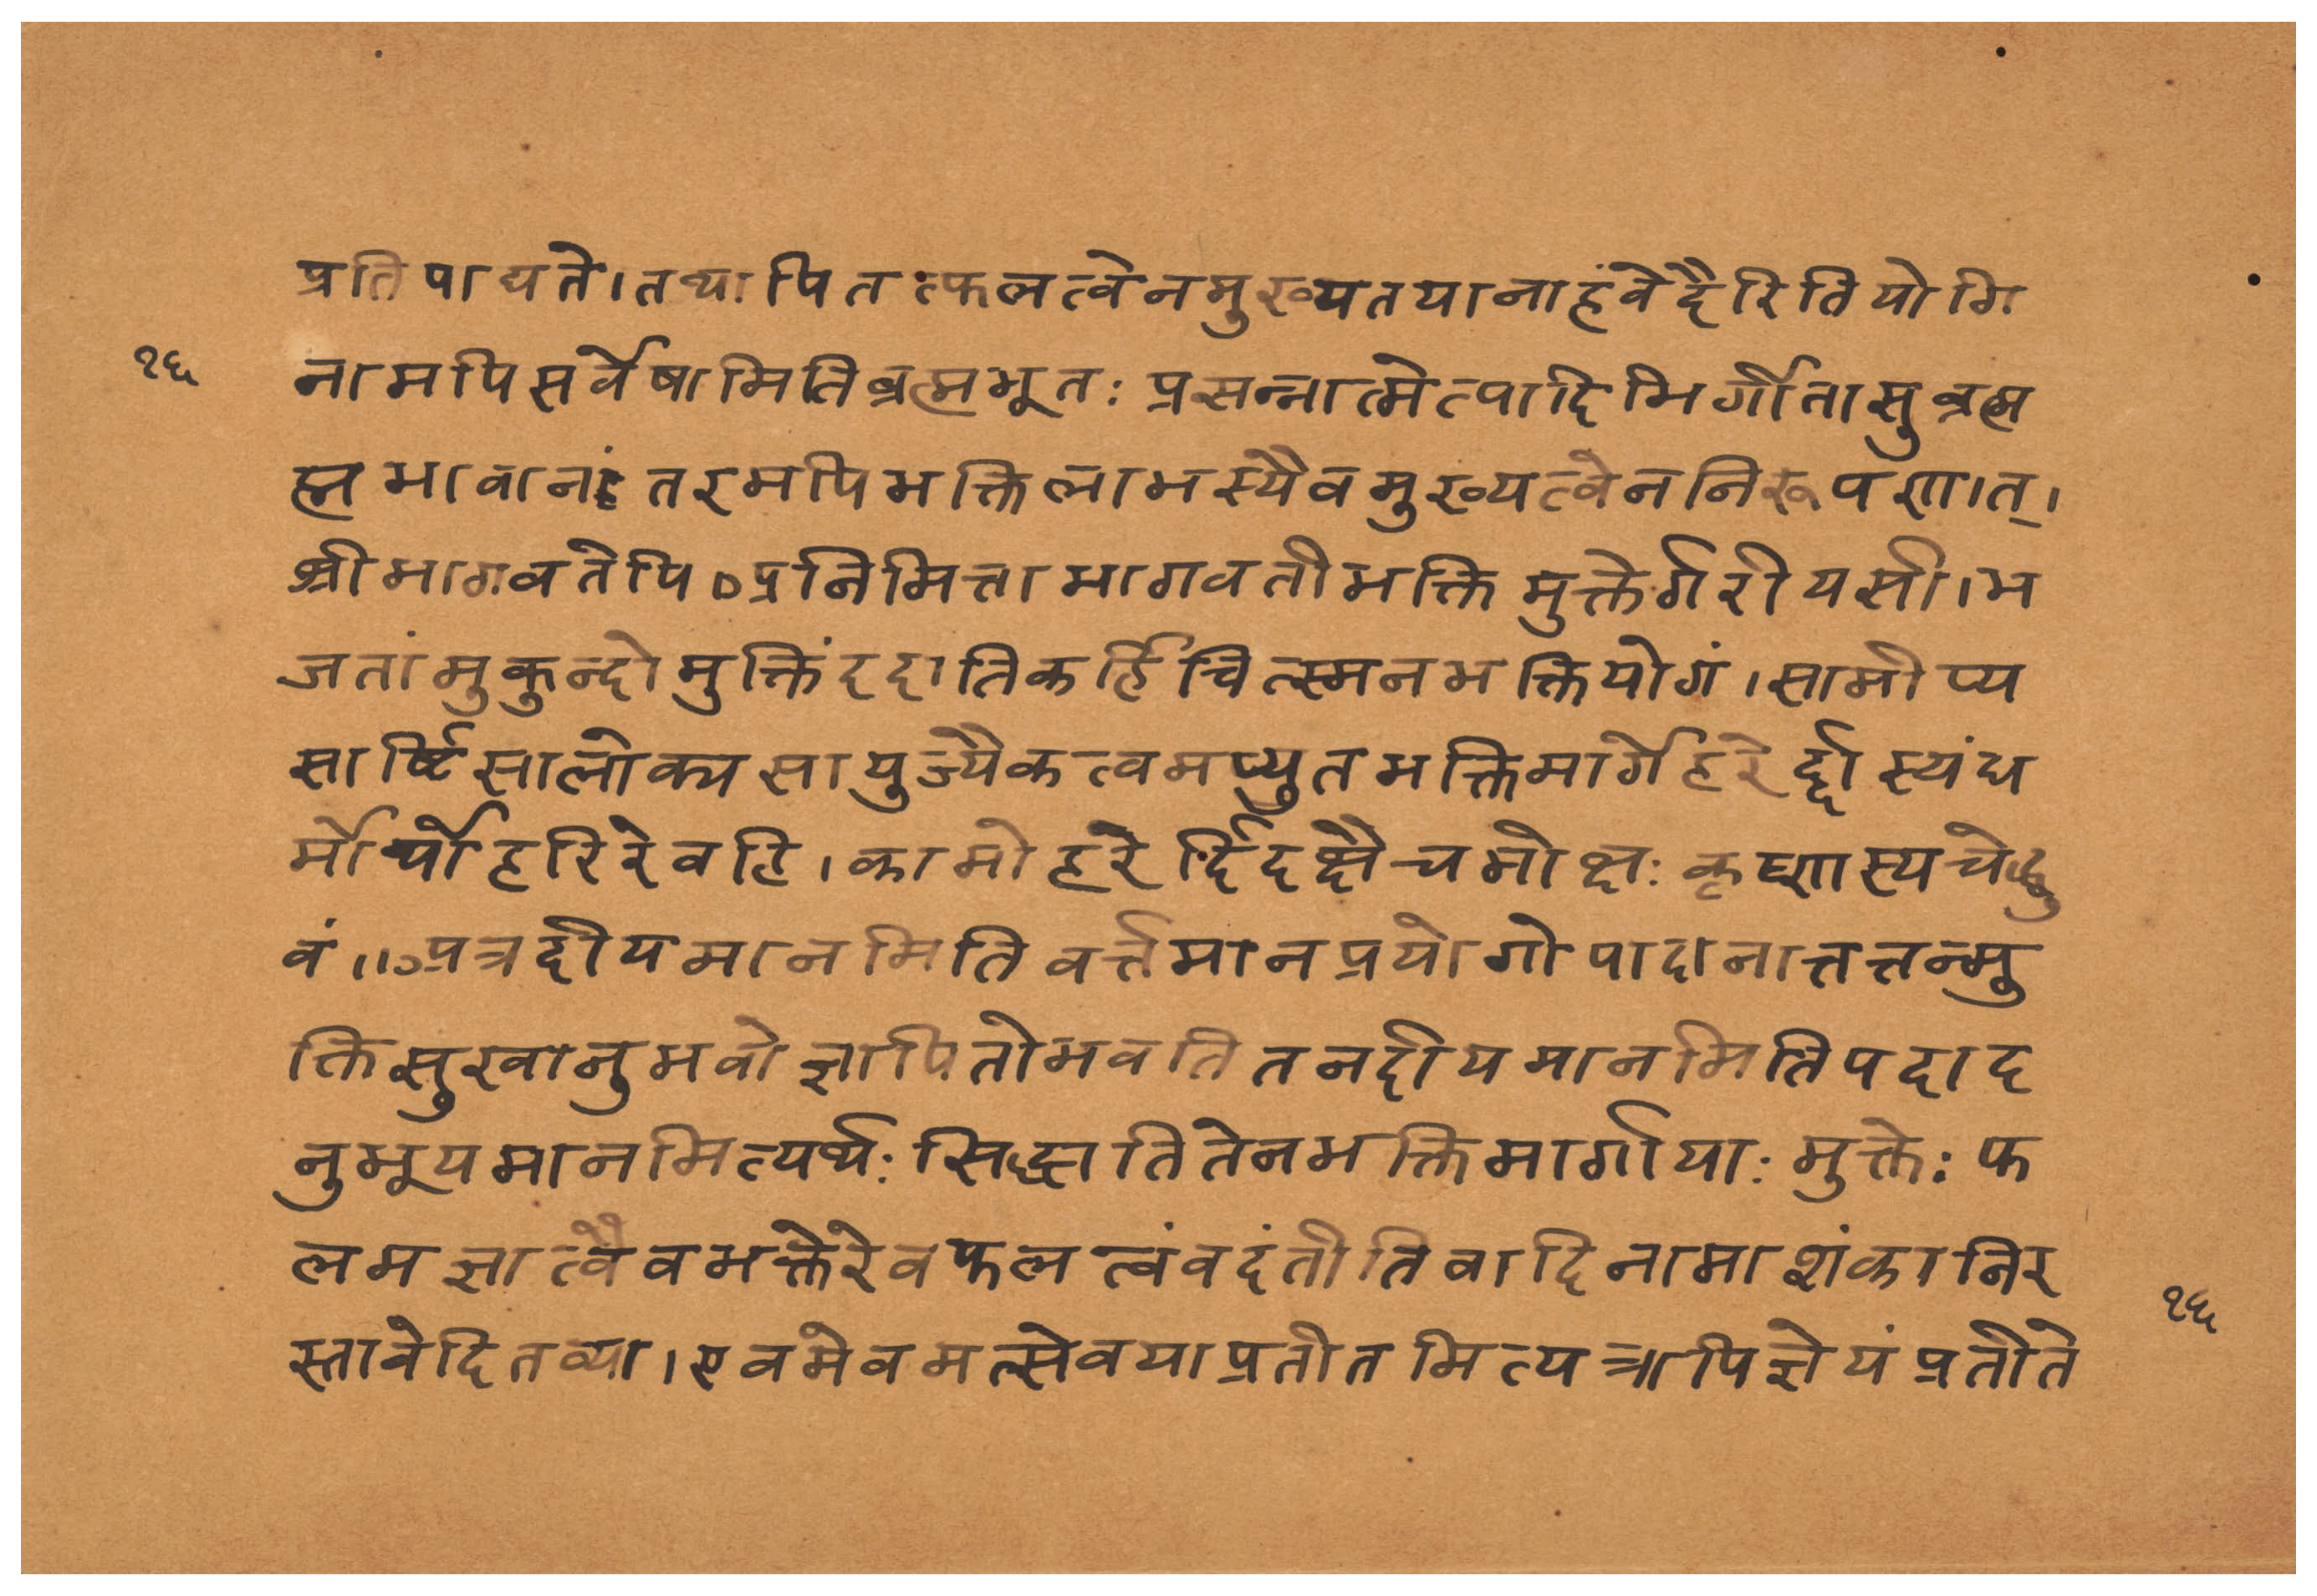 प्रतिपाद्यते।तथापितत्फलत्वेनमुख्यतयानाहंवेदैरितियोगि
१६
नामपिसर्वेषामितिब्रह्मभूतः प्रसन्नात्मेत्यादिभिर्गीतासुब्रह्म
ह्मभावानंतरमपिभक्तिलाभस्यैवमुख्यत्वेननिरूपणात्।
श्रीभागवतेपि अनिमित्ताभागवतीभक्तिमुक्तेर्गरीयसी।भ
जतांमुकुन्दोमुक्तिंददातिकर्हिचित्स्मनभक्तियोगं।सामीप्य
सार्ष्टिसालोक्यसायुज्यैकत्वमप्युतभक्तिमार्गेहरेर्द्दास्यंध
र्मोर्थोहरिरेवहि।कामोहरेर्दिदृक्षैचमोक्षः कृष्णस्यचेद्ध्रु
वं॥अत्रदीयमानमितिवर्त्तमानप्रयोगोपादानात्तत्तन्मु
क्तिसुखानुभवोज्ञापितोभवतितनदीयमानमितिपदाद
नुभूयमानमित्यर्थः सिद्धातितेनभक्तिमार्गीयाः मुक्तेः फ
लमज्ञात्वैवभक्तेरेवफलत्वंवदंतीतिवादिनामाशंकानिर
१६
स्तावेदितव्या।एवमेवमत्सेवयाप्रतीतमित्यत्रापिज्ञेयंप्रतीते